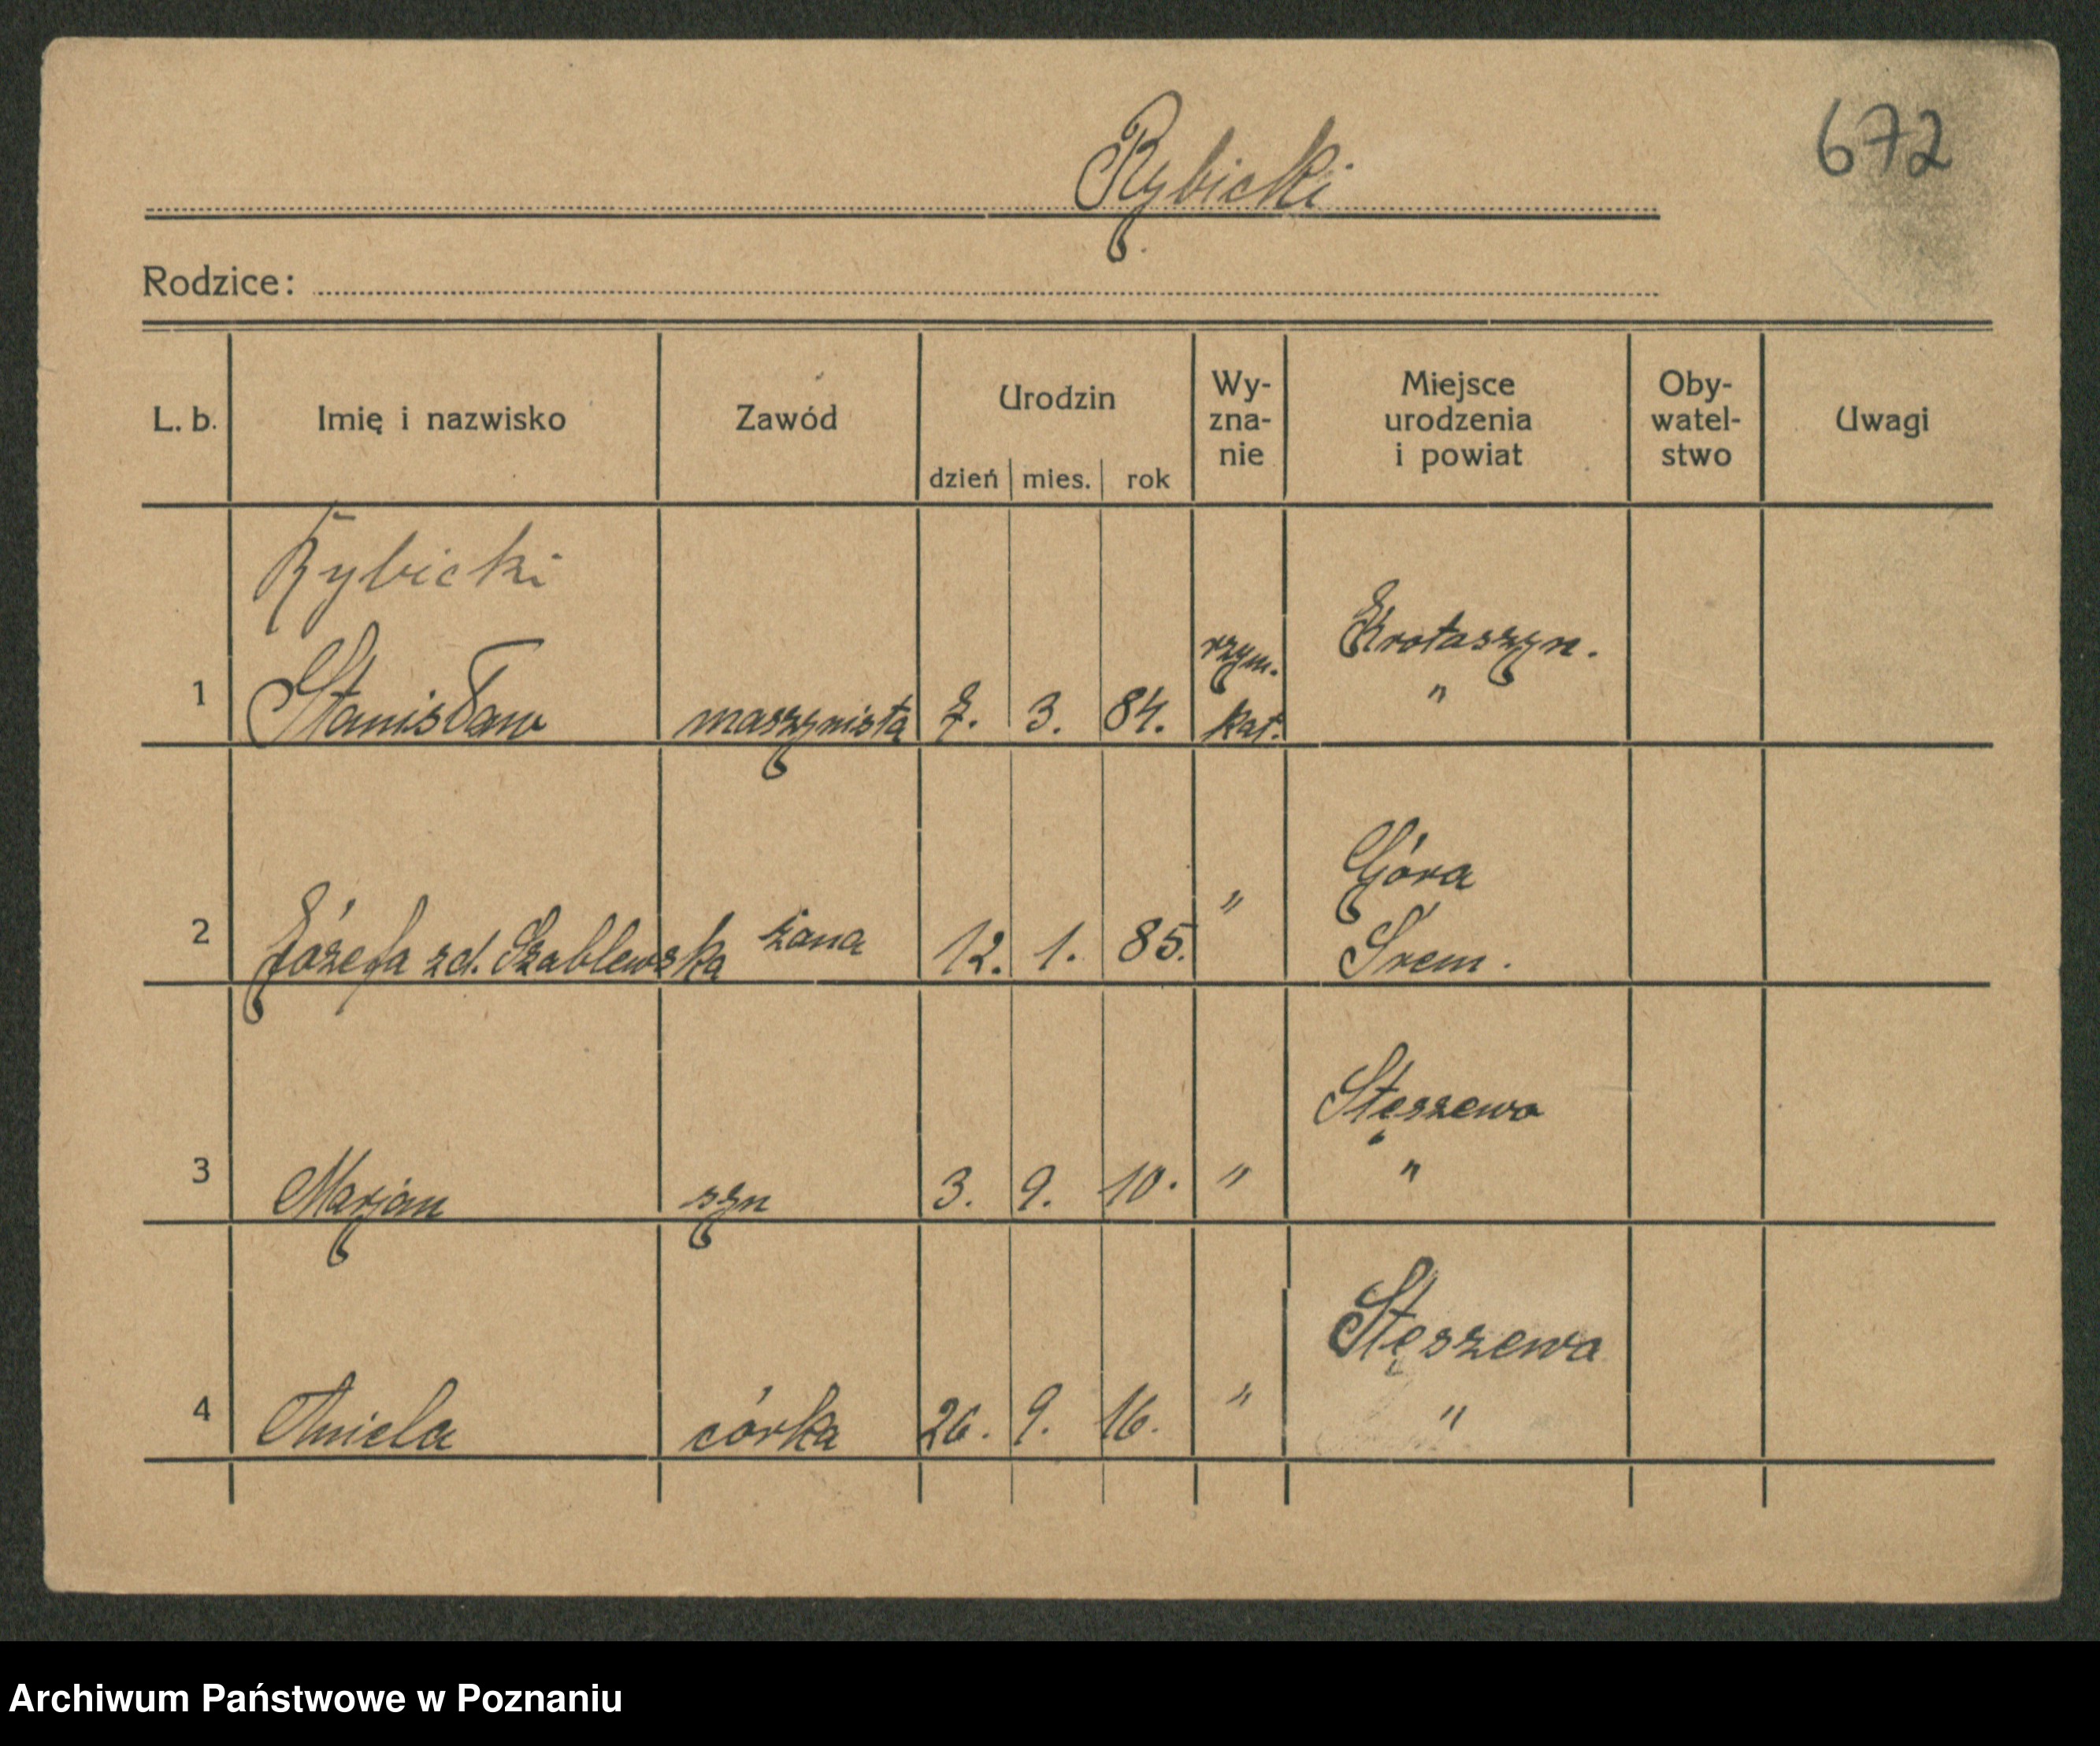 672
Rybicki
Rodzice:
L. b. Imię i nazwisko Zawód Urodzin dzień mies. rok Wy-zna-nie Miejsce urodzenia i powiat Oby-watel-stwo Uwagi
Rybicki
1 Stanisław maszynista 7. 3. 84. rzym. kat. Krotoszyn. "
2 Józefa zd. Szablewska żona 12. 1. 85. " Góra Śrem.
3 Marjan syn 3. 9. 10. " Stęszewo "
4 Aniela córka 26. 9. 16. " Stęszewo "
Archiwum Państwowe w Poznaniu